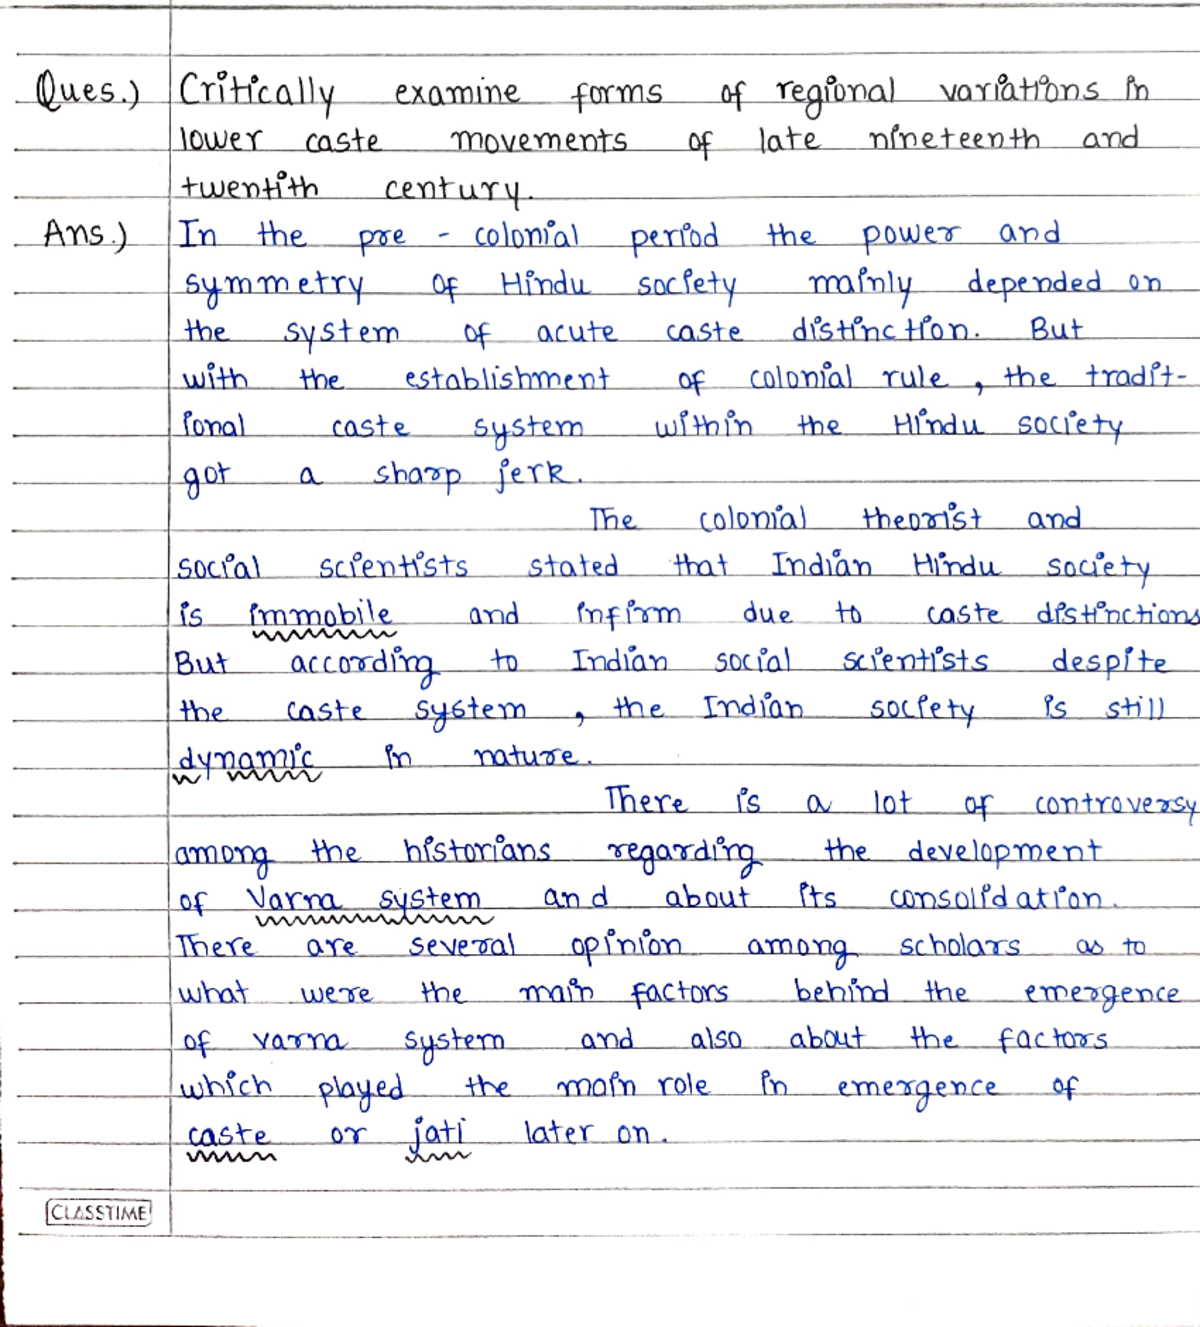 Ques.) Critically examine forms of regional variations in
lower caste movements of late nineteenth and
twentith century.
Ans.) In the pre - colonial period the power and
symmetry of Hindu society mainly depended on
the system of acute caste distinction. But
with the establishment of colonial rule, the tradit-
ional caste system within the Hindu society
got a sharp jerk.
The colonial theorist and
social scientists stated that Indian Hindu society
is immobile and infirm due to caste distinctions
But according to Indian social scientists despite
the caste system, the Indian society is still
dynamic in nature.
There is a lot of controversy
among the historians regarding the development
of Varna system and about its consolidation.
There are several opinion among scholars as to
what were the main factors behind the emergence
of varna system and also about the factors
which played the main role in emergence of
caste or jati later on.
CLASSTIME